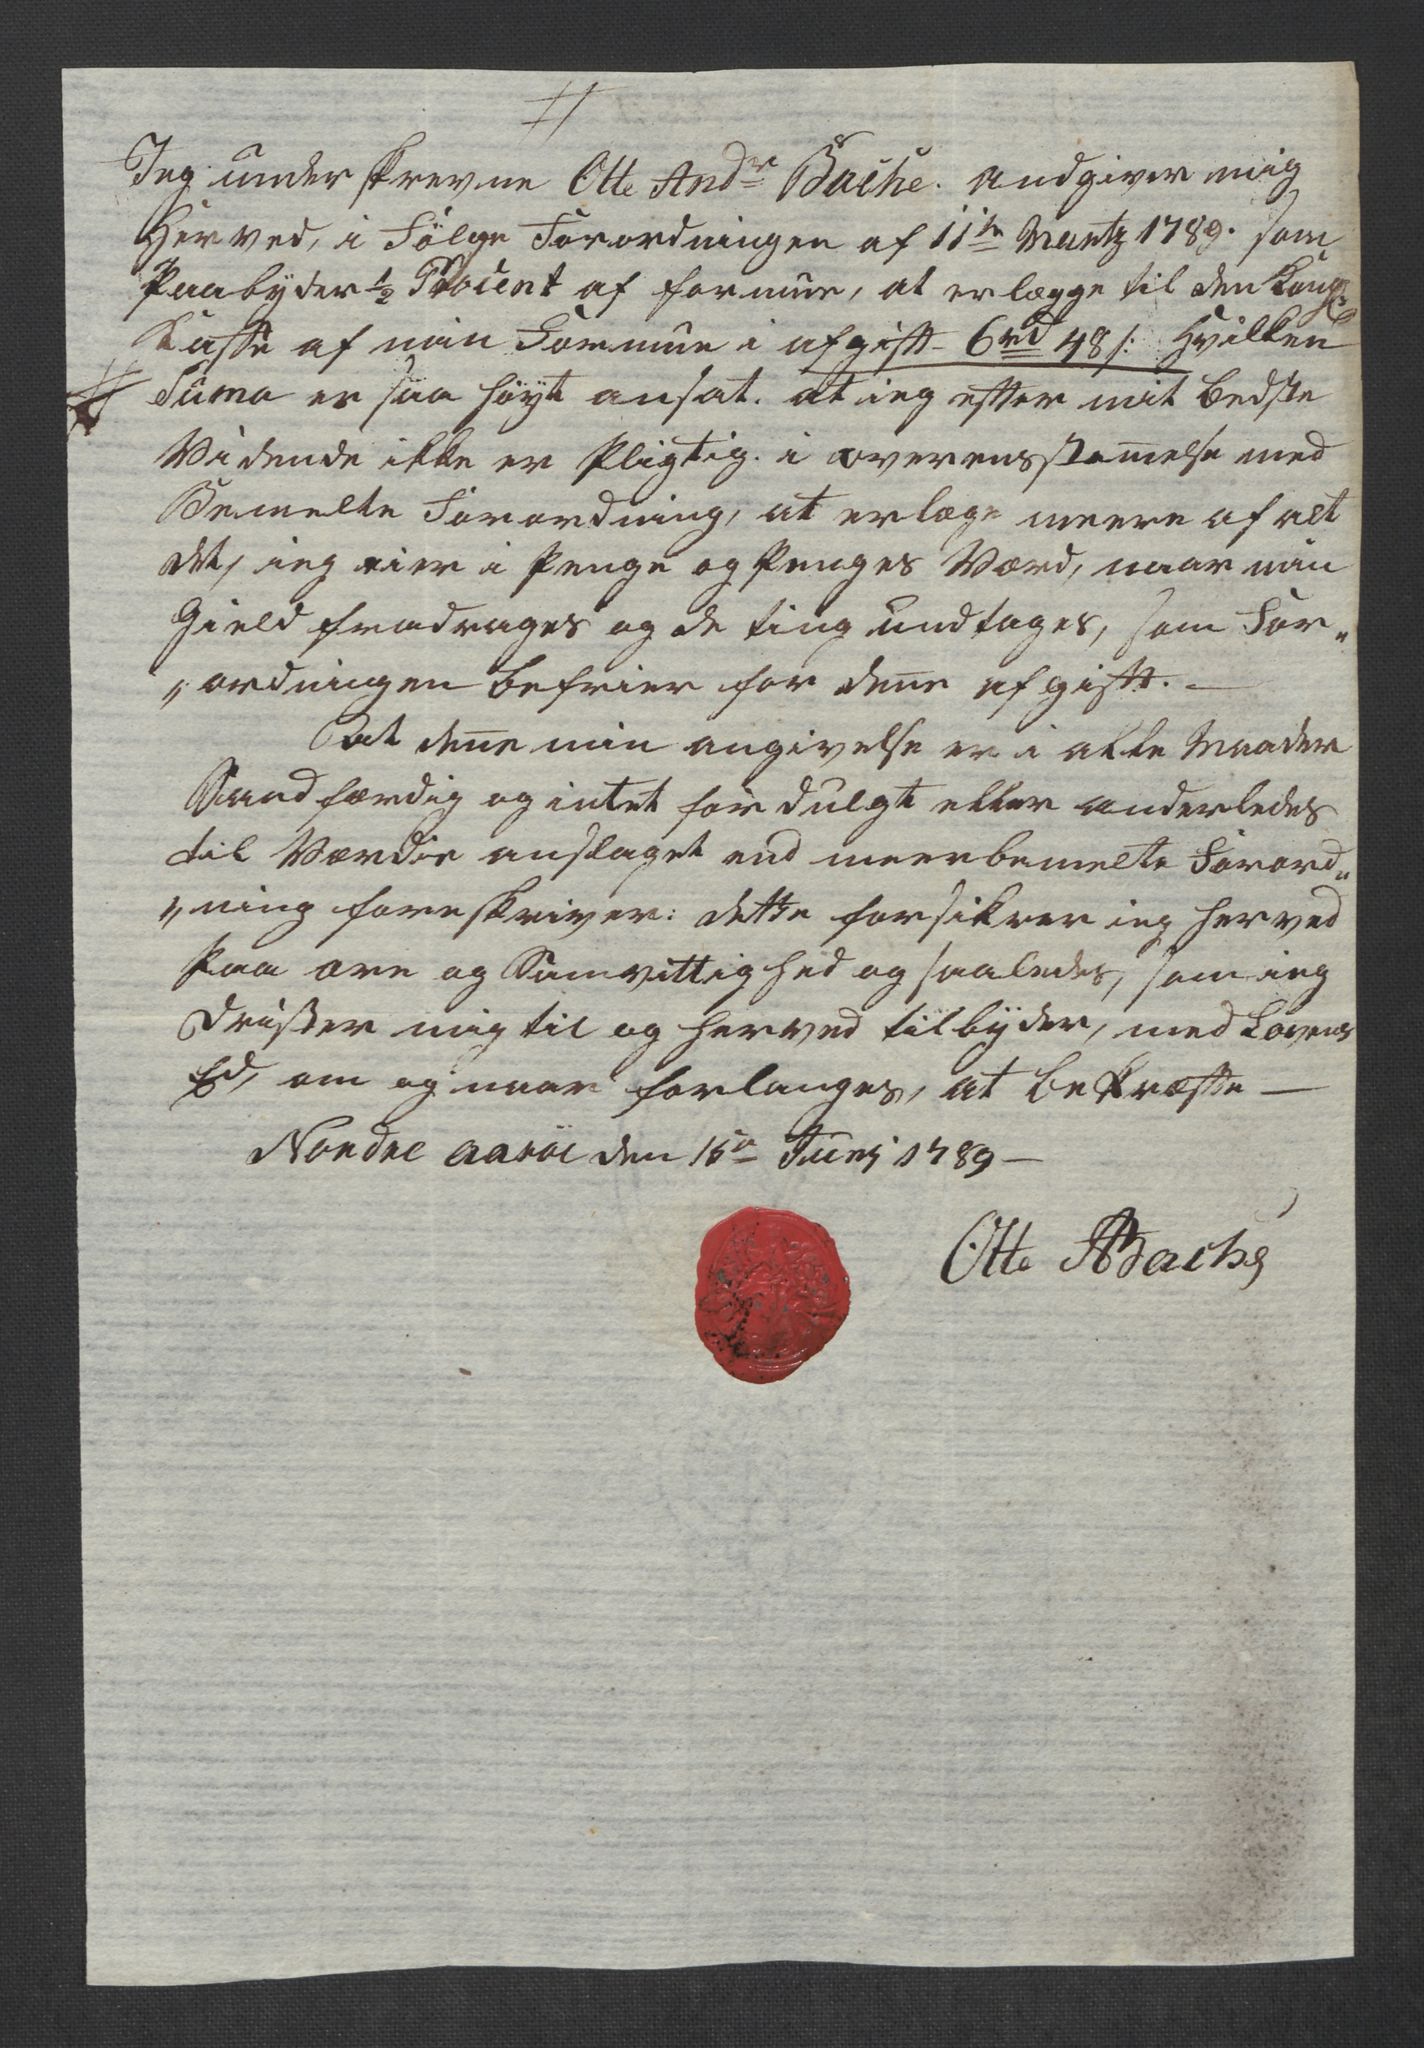 #
Jeg underskrevne Otte Andr Bache. andgiver mig
Herved, i Fölge Forordningen af 11te Martz 1789. som
Paabyder ½ Procent af formue, at erlægge til den Kongl:
Kasse af min Formue i afgift 6rd 48 s: Hvilken
# Suma er saa høyt ansat. at ieg efter mit bedste
Vidende ikke er Pligtig. i overensstemelse med
Bemelte Forordning, at erlæge meere af alt
det, ieg eier i Penge og Penges Værd, naar min
Gield fradrages og de ting undtages, som For„
„ordningen befrier for dene afgift. —
at dene min angivelse er i alle Maader
Sandfærdig og intet fordulgt eller anderledes
til Værdie anslaget end meerbemelte Forord„
„ning foreskriver: dette forsikrer ieg herved
Paa ære og Samvittighed og saaledes, som ieg
Drister mig til og herved tilbÿder, med Lovens
Ed, om og naar forlanges, at bekræfte —
Nordre Aaröe den 15de Junj 1789 —
Otte ABache